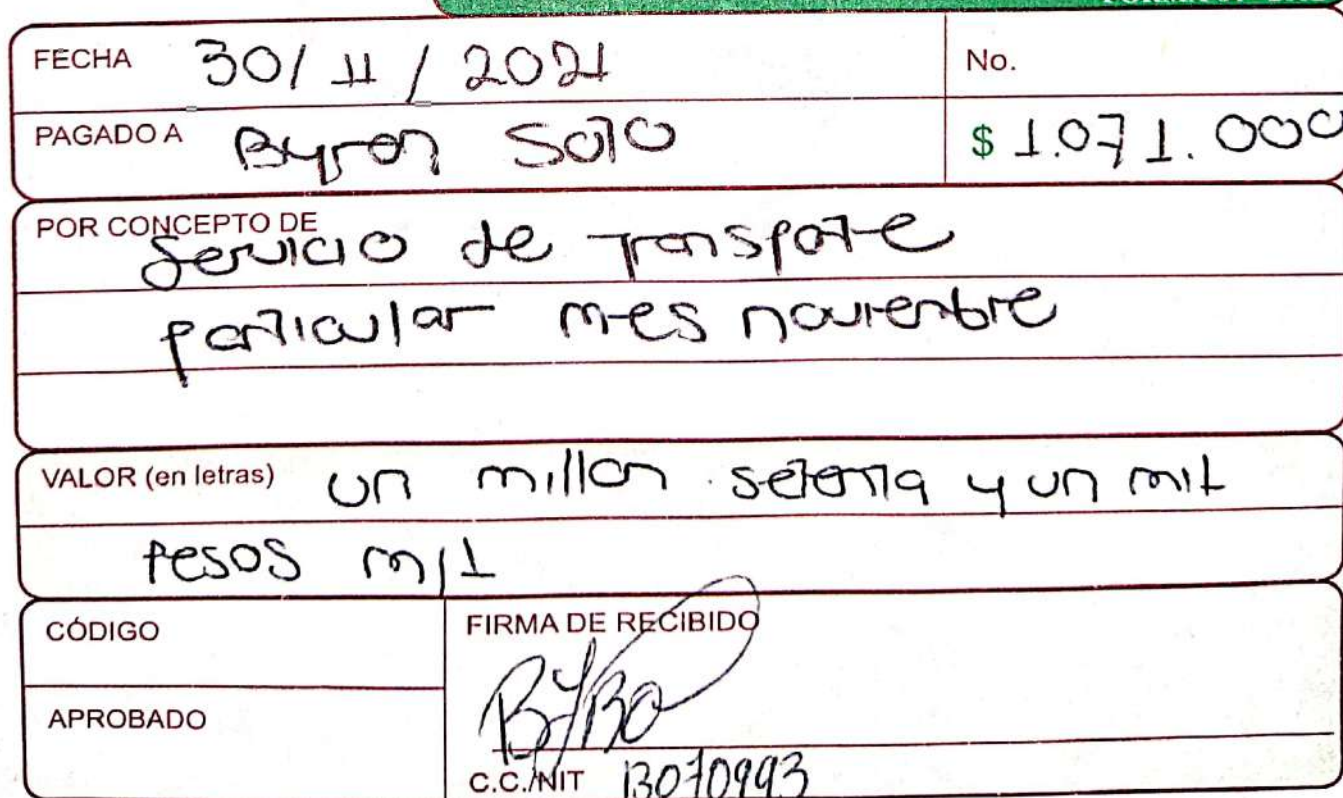 FECHA 30/11/2021 No.
PAGADO A Byron Soto $ 1.071.000
POR CONCEPTO DE
Servicio de transporte
particular mes noviembre
VALOR (en letras) un millon setenta y un mil
pesos m/l
CÓDIGO FIRMA DE RECIBIDO
APROBADO
C.C./NIT 13070993